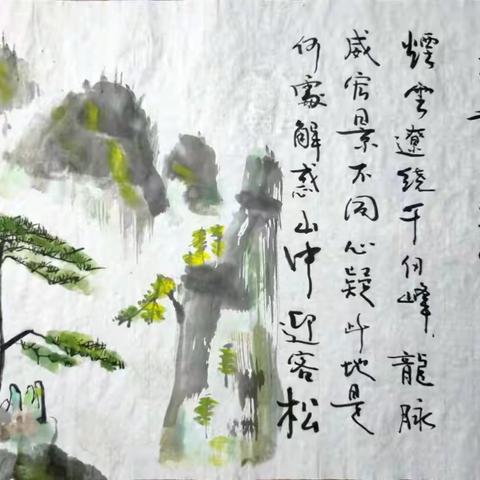 煙雲遼绕千仞峰龍脉
威宏景不同心疑此地是
何處解惑山中迎客松